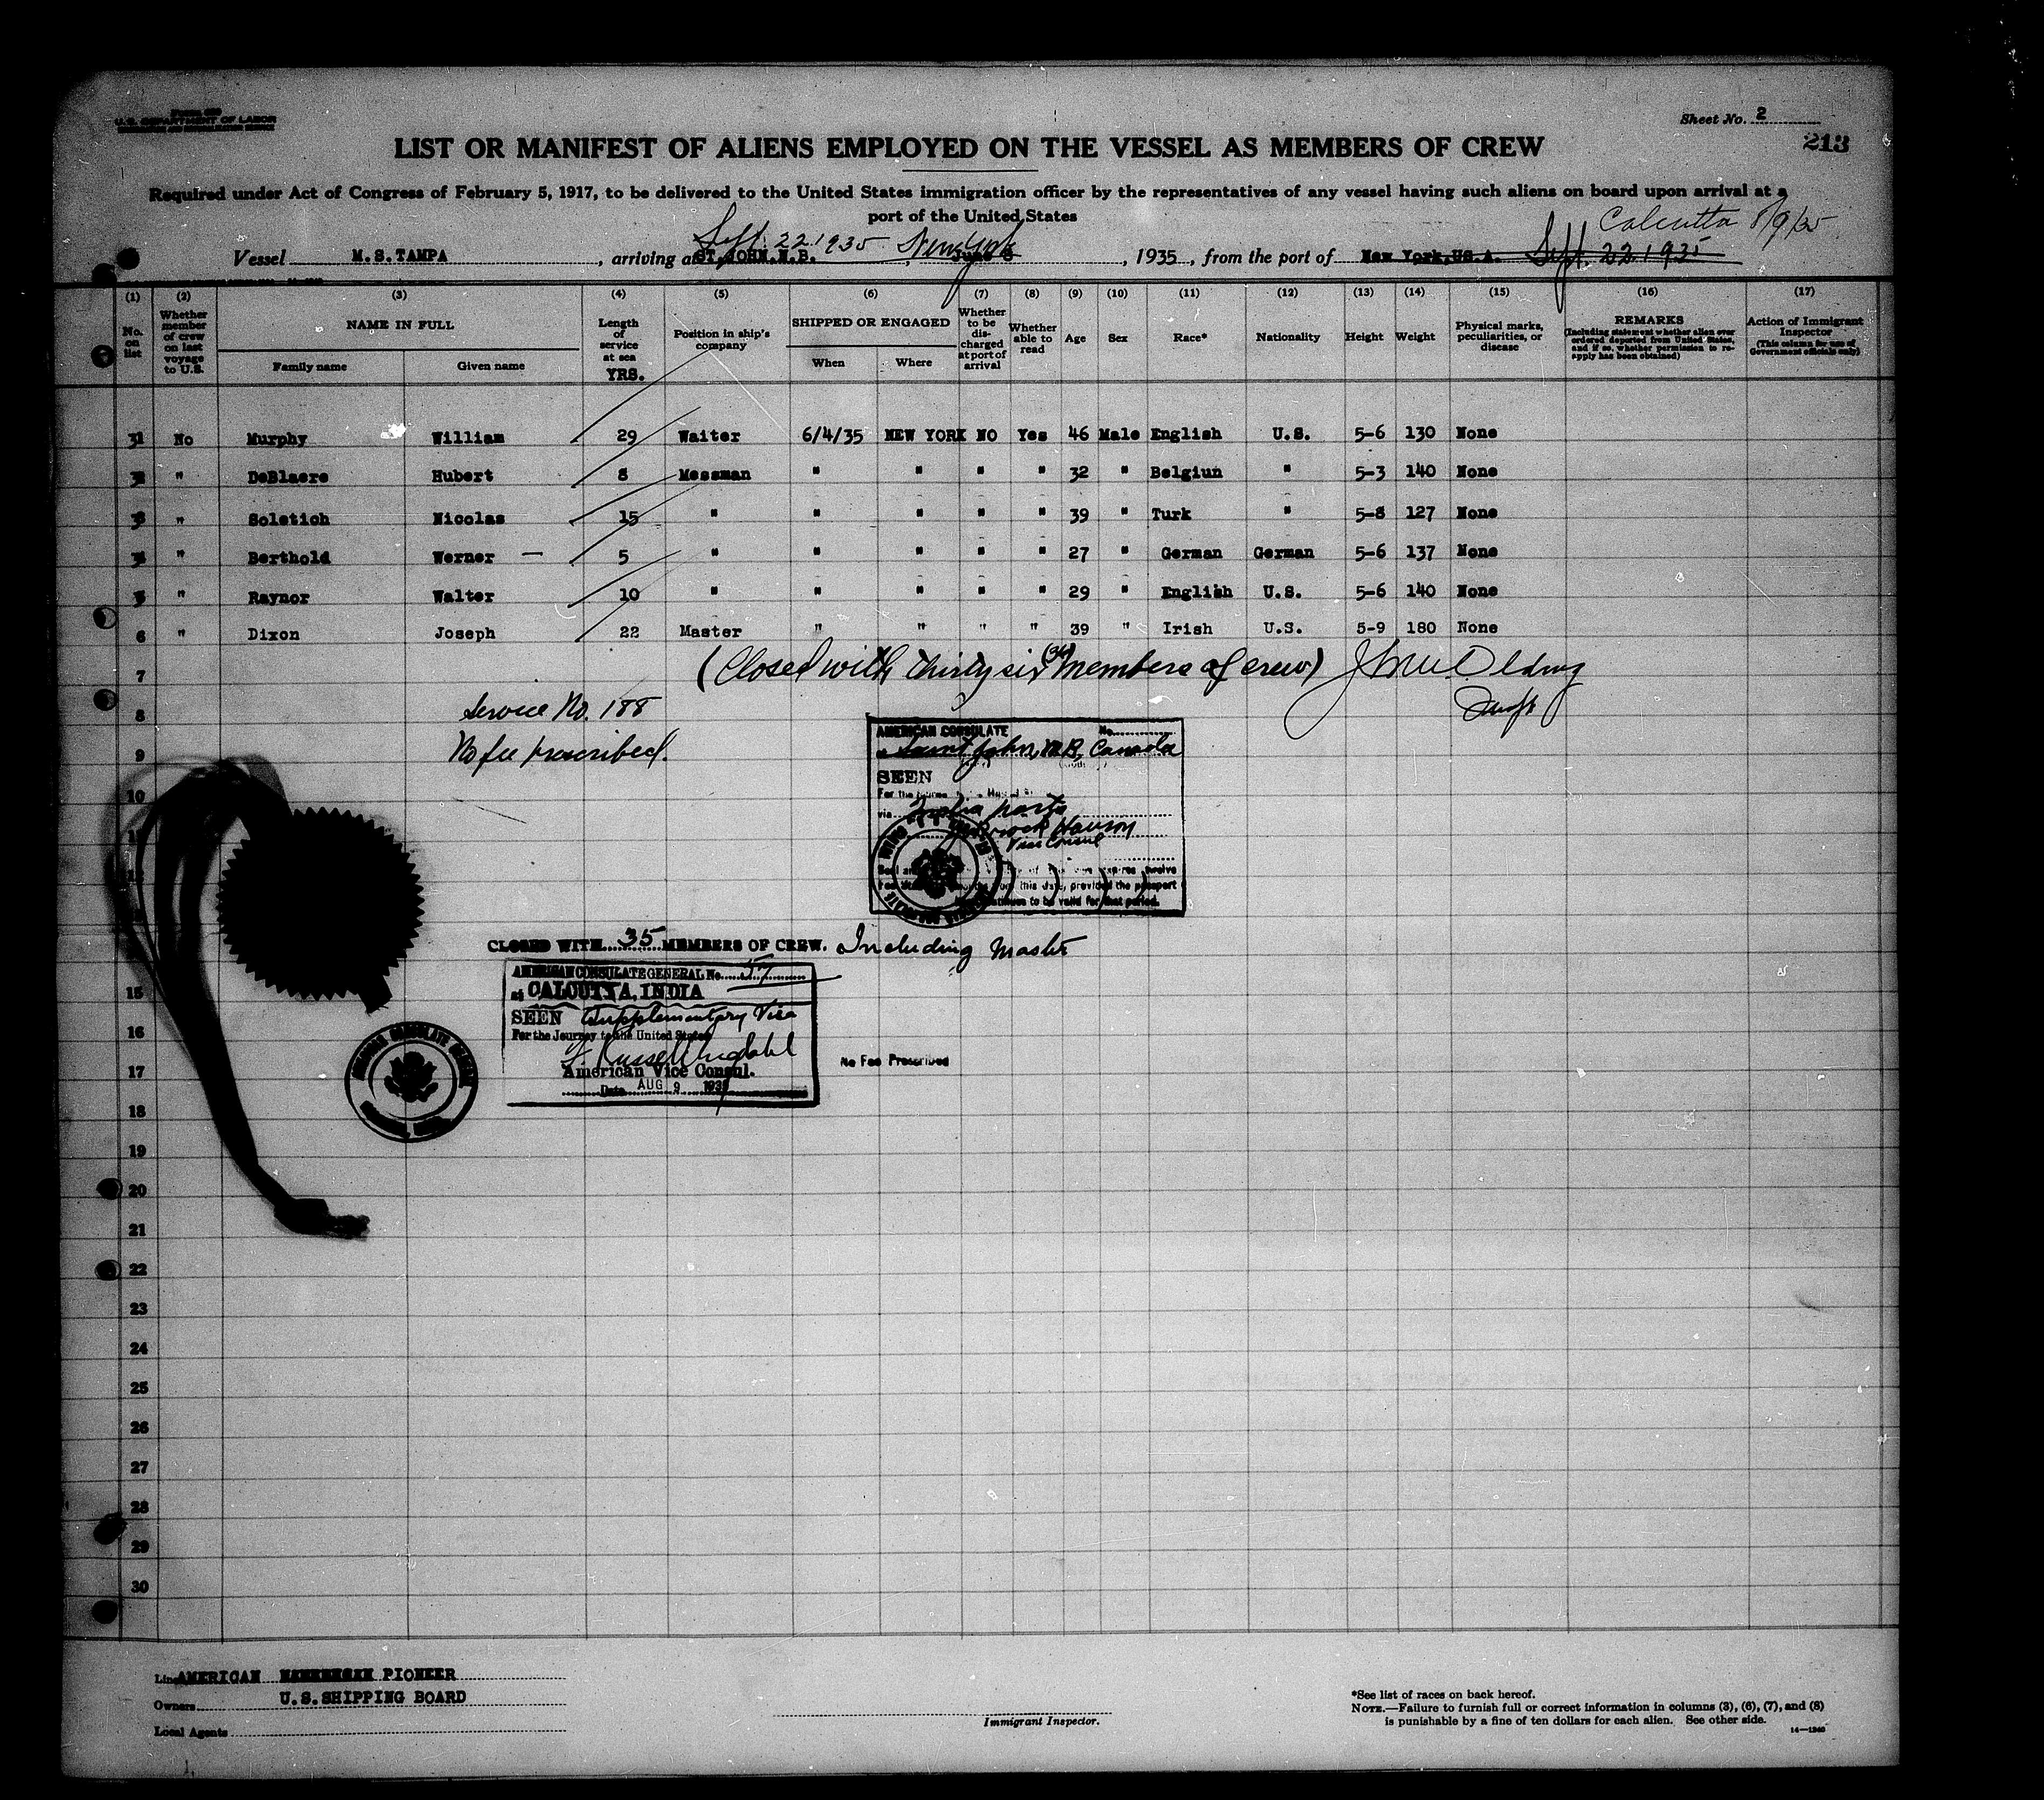 U.S. DEPARTMENT OF LABOR
Sheet No. 2
213
LIST OR MANIFEST OF ALIENS EMPLOYED ON THE VESSEL AS MEMBERS OF CREW
Required under Act of Congress of February 5, 1917, to be delivered to the United States immigration officer by the representatives of any vessel having such aliens on board upon arrival at a
port of the United States
Calcutta 8/9/35
Sept. 22 1935 New York
Vessel M.S. TAMPA, arriving at ST. JOHN. N.B., June 8, 1935, from the port of New York, US.A. Sept. 22 1935
(1) (2) (3) (4) (5) (6) (7) (8) (9) (10) (11) (12) (13) (14) (15) (16) (17)
No. on list
Whether member of crew on last voyage to U.S.
NAME IN FULL
Family name
Given name
Length of service at sea YRS.
Position in ship's company
SHIPPED OR ENGAGED
When
Where
Whether to be discharged at port of arrival
Whether able to read
Age
Sex
Race*
Nationality
Height
Weight
Physical marks, peculiarities, or disease
REMARKS
(Including statement whether alien ever ordered deported from United States, and if so, whether permission to reapply has been obtained)
Action of Immigrant Inspector
(This column for use of Government officials only)
31 No Murphy William 29 Waiter 6/4/35 NEW YORK NO Yes 46 Male English U.S. 5-6 130 None
" DeBlaere Hubert 8 Messman " " " " 32 " Belgiun " 5-3 140 None
" Soletich Nicolas 15 " " " " " 39 " Turk " 5-8 127 None
" Berthold Werner — 5 " " " " " 27 " German German 5-6 137 None
" Raynor Walter 10 " " " " " 29 " English U.S. 5-6 140 None
6 " Dixon Joseph 22 Master " " " " 39 " Irish U.S. 5-9 180 None
7 (Closed with thirty six (36) members of crew)
8 Service No. 188
9 No fee prescribed.
AMERICAN CONSULATE No.
at Saint John, N.B., Canada
SEEN
via India ports
Vice Consul
this date, provided the passport
continues to be valid for that period.
10
11
12
13
CLOSED WITH 35 MEMBERS OF CREW. Including Master
AMERICAN CONSULATE GENERAL No. 57
at CALCUTTA, INDIA
SEEN Supplementary Visa
For the Journey to the United States
American Vice Consul.
Date AUG 9 1935
No Fee Prescribed
AMERICAN CONSULATE GENERAL
15
16
17
18
19
20
21
22
23
24
25
26
27
28
29
30
Line AMERICAN PIONEER
Owners U.S. SHIPPING BOARD
Local Agents
Immigrant Inspector.
*See list of races on back hereof.
NOTE.—Failure to furnish full or correct information in columns (3), (6), (7), and (8)
is punishable by a fine of ten dollars for each alien. See other side.
14—1240